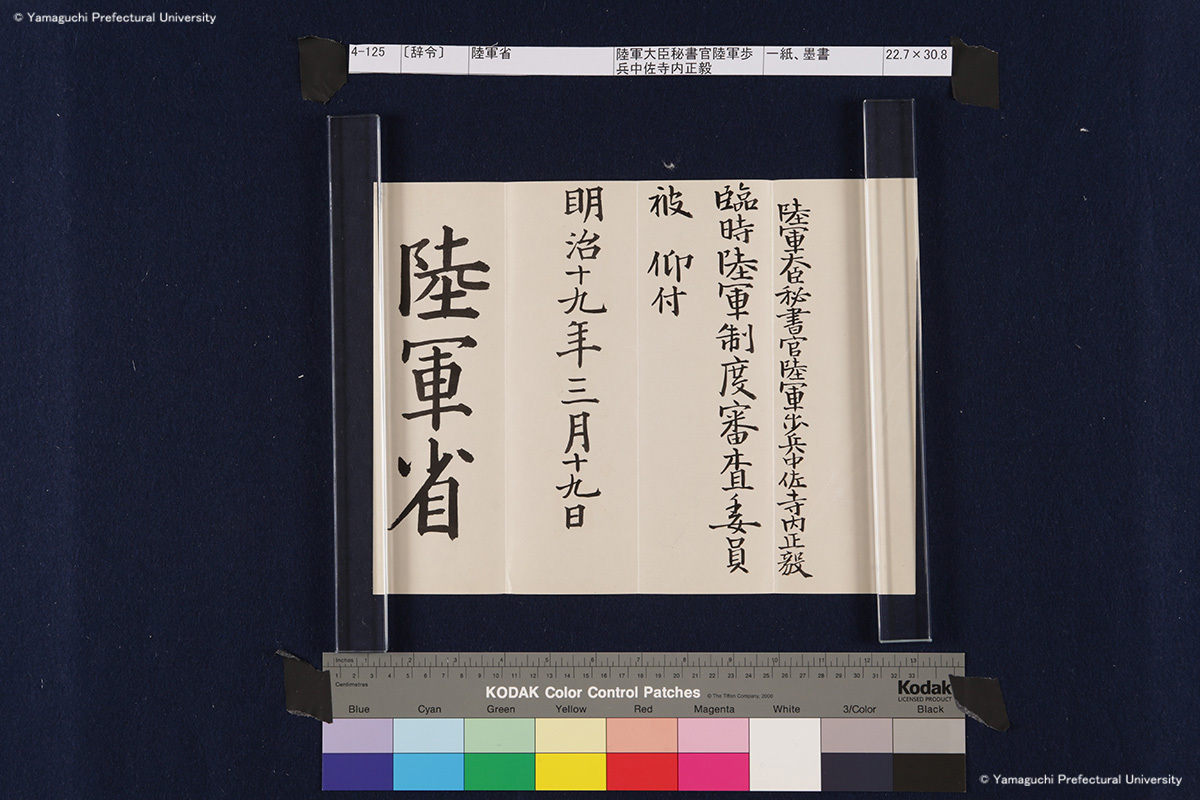 © Yamaguchi Prefectural University
4-125 〔辞令〕 陸軍省 陸軍大臣秘書官陸軍歩兵中佐寺内正毅 一紙、墨書 22.7×30.8
陸軍大臣秘書官陸軍歩兵中佐寺内正毅
臨時陸軍制度審査委員
被 仰付
明治十九年三月十九日
陸軍省
Inches 1 2 3 4 5 6 7 8 9 10 11 12 13
Centimetres 1 2 3 4 5 6 7 8 9 10 11 12 13 14 15 16 17 18 19 20 21 22 23 24 25 26 27 28 29 30 31 32 33
KODAK Color Control Patches © The Tiffen Company, 2008
Kodak
LICENSED PRODUCT
Blue Cyan Green Yellow Red Magenta White 3/Color Black
© Yamaguchi Prefectural University